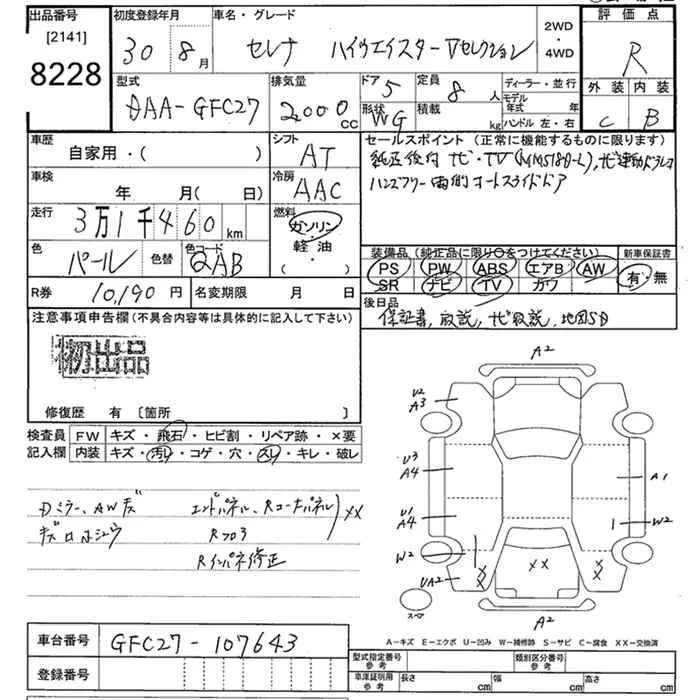 出品番号
[2141]
8228
初度登録年月
30 8 月
車名・グレード
セレナ ハイウエイスター Vセレクション
2WD
・
4WD
評価点
R
外装 内装
C B
型式
DAA-GFC27
排気量
2000 cc
ドア 5
形状 WG
定員 8 人
積載 kg
ディーラー・並行
モデル年式 年
ハンドル 左・右
車歴
自家用・( )
シフト
AT
車検
年 月( 日)
冷房
AAC
走行
3万1千460 km
燃料
ガソリン
軽油
色
パール
色替
色コード
QAB
R券 10,190 円
名変期限 月 日
セールスポイント (正常に機能するものに限ります)
純正後付 ナビ・TV(MM518D-L), ナビ連動ドラレコ
ハンズフリー両側オートスライドドア
装備品 (純正品に限り○をつけてください)
PS PW ABS エアB AW
SR ナビ TV カワ
新車保証書
有・無
後日品
保証書, 取説, ナビ取説, 地図SD
注意事項申告欄 (不具合内容等は具体的に記入して下さい)
初出品
修復歴 有 [箇所 ]
検査員 FW キズ・飛石・ヒビ割・リペア跡・×要
記入欄 内装 キズ・汚レ・コゲ・穴・スレ・キレ・破レ
Dミラー、AWキズ
キズ
エンドパネル、Rコーナーパネル XX
Rフロア
Rインパネ修正
A2
U2
A3
U3
A4
U1
A4
W2
UA2
A1
W2
XX
XX
XX
スペア
A2
A-キズ E-エクボ U-凹み W-補修跡 S-サビ C-腐食 XX-交換済
車台番号 GFC27-107643
登録番号
型式指定番号
参考
類別区分番号
参考
車庫証明用
参考
長さ cm
幅 cm
高さ cm